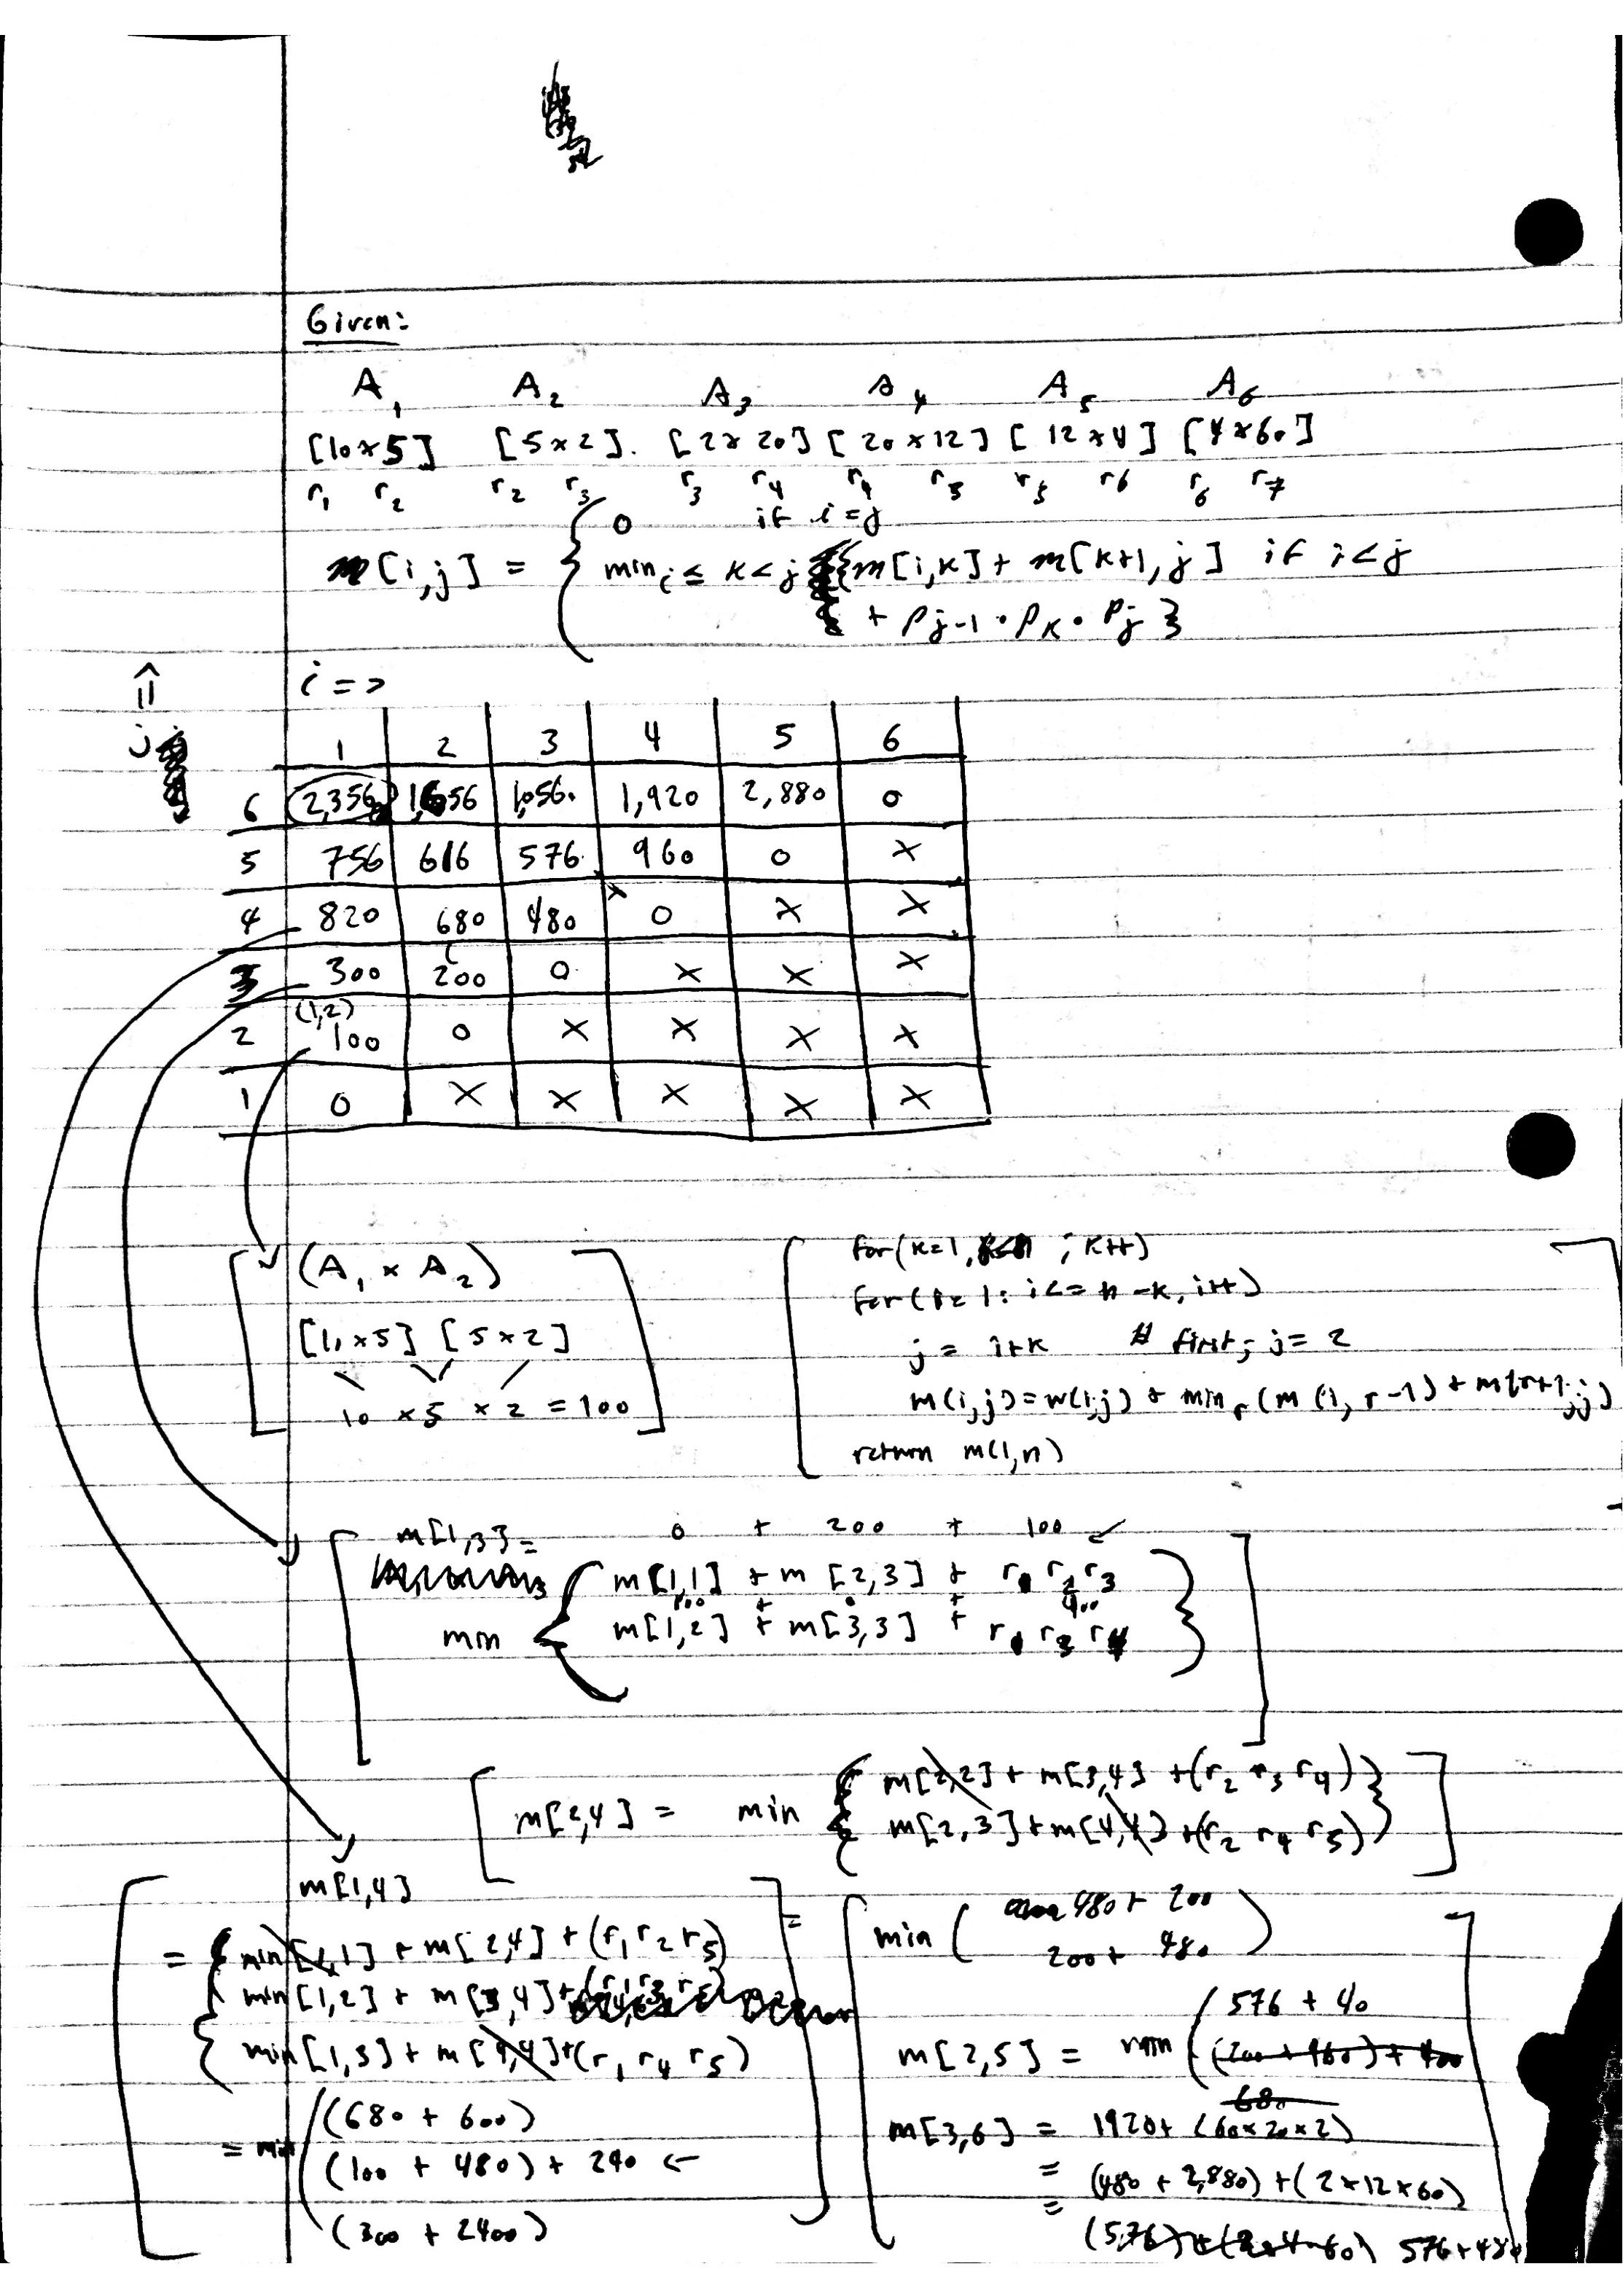 Given:
A1 A2 A3 A4 A5 A6
[10x5] [5x2]. [2x20] [20x12] [12x4] [4x60]
r1 r2 r2 r3 r3 r4 r4 r5 r5 r6 r6 r7
m[i,j] = { 0 if i=j
min i ≤ k<j {m[i,k]+ m[k+1,j] if i<j
+ Pj-1 · Pk · Pj }
i =>
j =>
1 2 3 4 5 6
6 2,356 1,656 1,056. 1,920 2,880 0
5 756 616 576. 960 0 x
4 820 680 480 0 x x
3 300 200 0 x x x
(1,2)
2 100 0 x x x x
1 0 x x x x x
(A1 x A2)
[10x5] [5x2]
10 x5 x 2 = 100
for(k=1, ; k++)
for(i=1: i<= n-k, i++)
j = i+k # first; j=2
m(i,j)=w(i,j) + min r (m (i, r-1) + m(r+1,j)
return m(1,n)
m[1,3] = 0 + 200 + 100 ↙
m[1,1] + m [2,3] + r1 r2 r3
100 + 0 + 400
min { m[1,2] + m[3,3] + r1 r3 r4 }
m[2,4] = min { m[2,2] + m[3,4] +(r2 r3 r4) }
m[2,3]+m[4,4] +(r2 r4 r5)
m[1,4]
= { min[1,1] + m[2,4] + (r1 r2 r5)
min[1,2] + m[3,4] + (r1 r3 r5)
min[1,3] + m[4,4]+(r1 r4 r5)
= min ( (680 + 600)
(100 + 480) + 240 ←
(300 + 2400)
= min ( 480 + 200
200 + 480 )
576 + 40
m[2,5] = min ( (200 + 960) + 400
680
m[3,6] = 1920+ (60x20x2)
= (480 + 2,880) +( 2x12x60)
= (576)+(2x4x60) 576+480